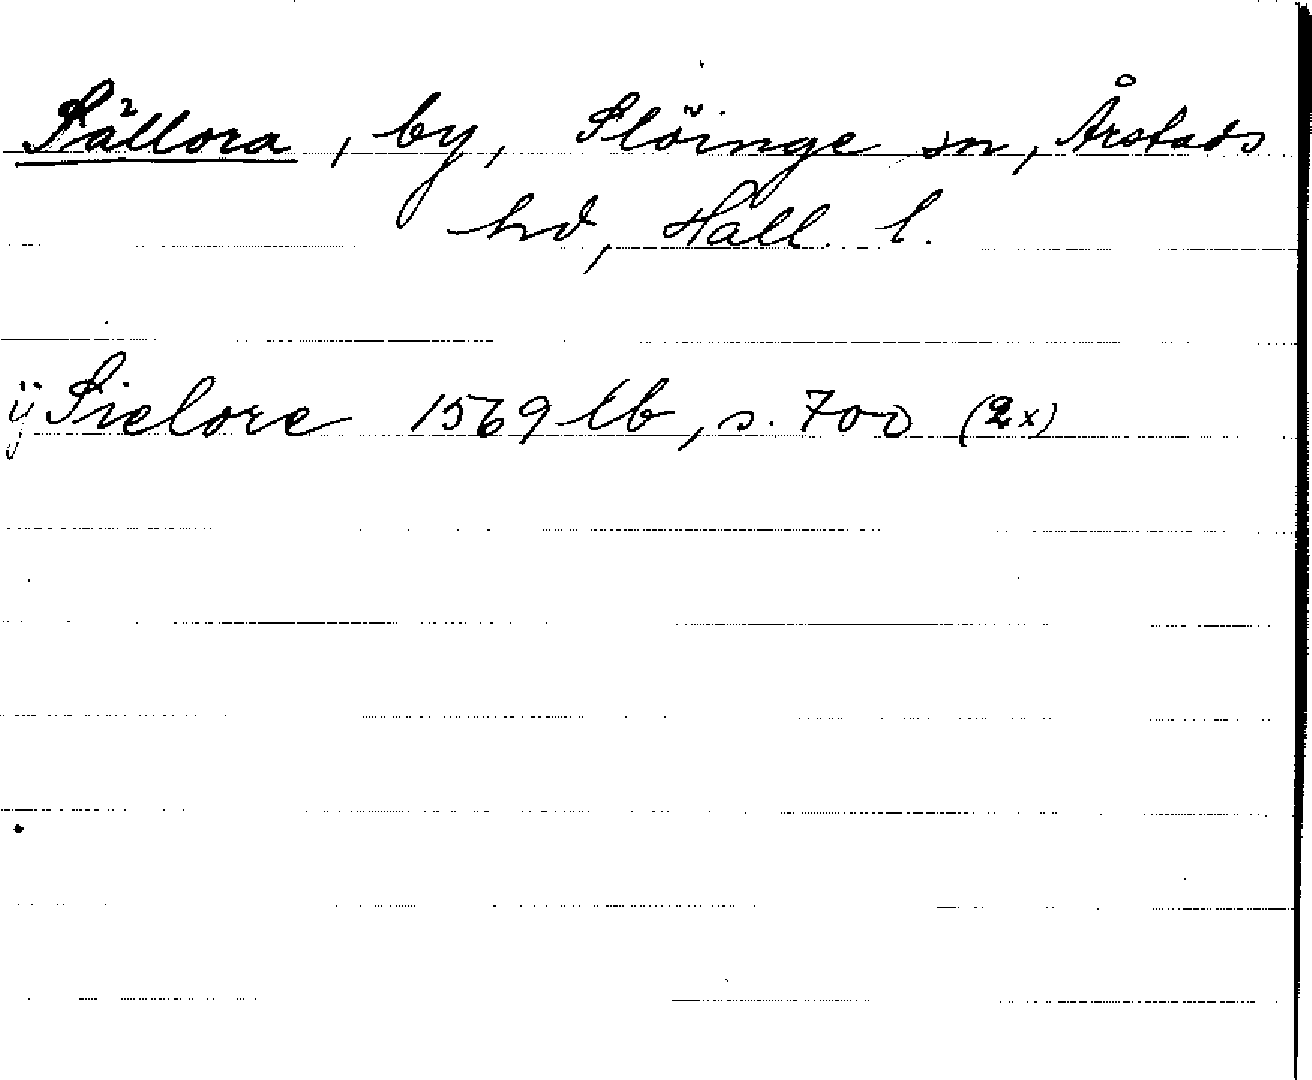 Sällora, by, Slöinge sn, Årstads
hd, Hall. l.
ÿ Sielore 1569 lb, s. 700 (2x)